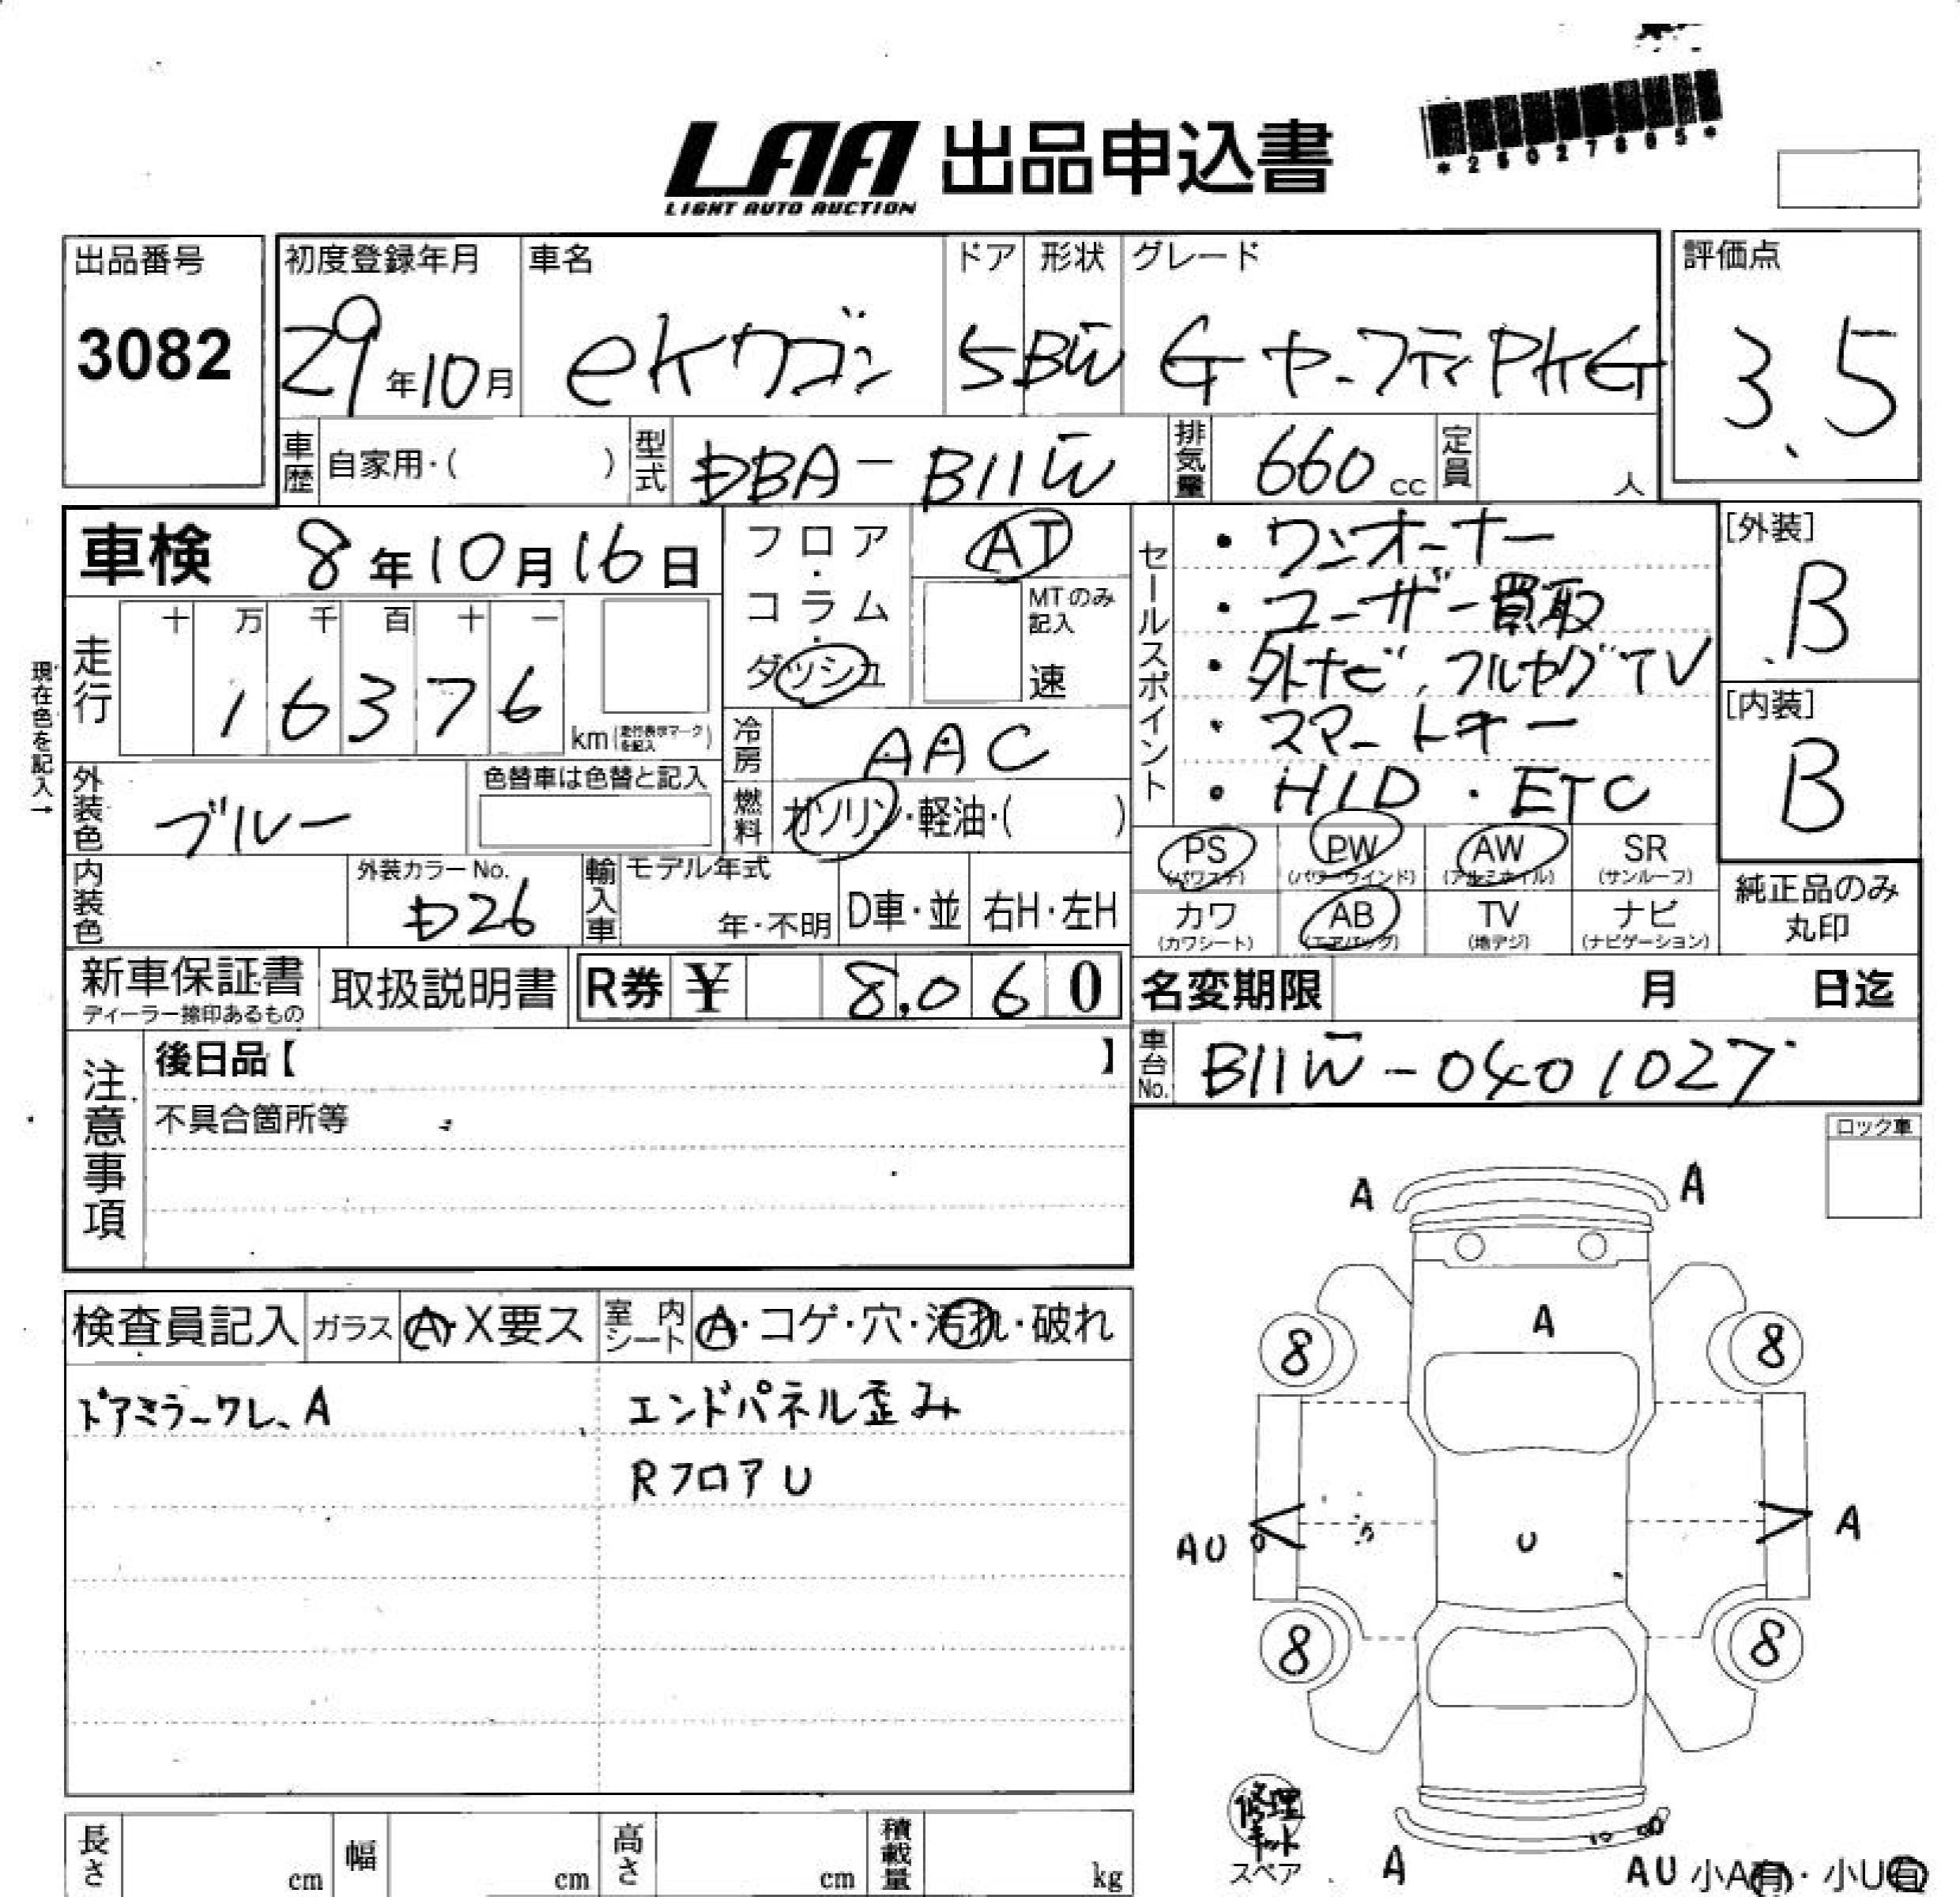 LAA 出品申込書
LIGHT AUTO AUCTION
*26027865*
出品番号
3082
初度登録年月
29年10月
車名
eKワゴン
ドア
5
形状
BW
グレード
G セーフティPKG
評価点
3.5
車歴
自家用・( )
型式
DBA-B11W
排気量
660cc
定員
人
車検 8年10月16日
現在色を記入→
走行
十 万 千 百 十 一
1 6 3 7 6
km(走行表示マークを記入)
フロア・コラム・ダッシュ
AT
MTのみ記入
速
冷房
AAC
燃料
ガソリン・軽油・( )
セールスポイント
・ワンオーナー
・ユーザー買取
・外ナビ,フルセグTV
・スマートキー
・HID・ETC
[外装]
B
[内装]
B
外装色
ブルー
色替車は色替と記入
内装色
外装カラーNo.
D26
輸入車
モデル年式
年・不明
D車・並
右H・左H
PS
(パワステ)
PW
(パワーウインド)
AW
(アルミホイル)
SR
(サンルーフ)
カワ
(カワシート)
AB
(エアバッグ)
TV
(地デジ)
ナビ
(ナビゲーション)
純正品のみ
丸印
新車保証書
ディーラー捺印あるもの
取扱説明書
R券 ¥ 8,060
名変期限 月 日迄
車台No.
B11W-0401027
注意事項
後日品【 】
不具合箇所等
ロック車
検査員記入
ガラス
A・X要ス
室内シート
A・コゲ・穴・汚れ・破れ
ドアミラーワレ、A
エンドパネル歪み
RフロアU
A
A
A
8
8
AU
U
A
8
8
修理キット
スペア
A
AU
小A有・小U有
長さ
cm
幅
cm
高さ
cm
積載量
kg